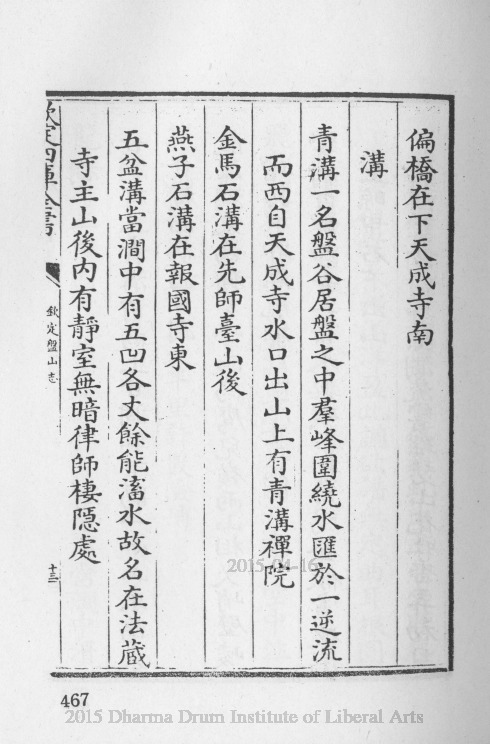 偏橋在下天成寺南
溝
青溝一名盤谷居盤之中羣峰圍繞水匯於一逆流
而西自天成寺水口出山上有青溝禪院
金馬石溝在先師臺山後
燕子石溝在報國寺東
五盆溝當澗中有五凹各丈餘能滀水故名在法蔵
寺主山後内有靜室無暗律師棲隠處
欽定四庫全書
欽定盤山志
十三
2015-04-16
467
2015 Dharma Drum Institute of Liberal Arts